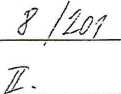 8/201
II.